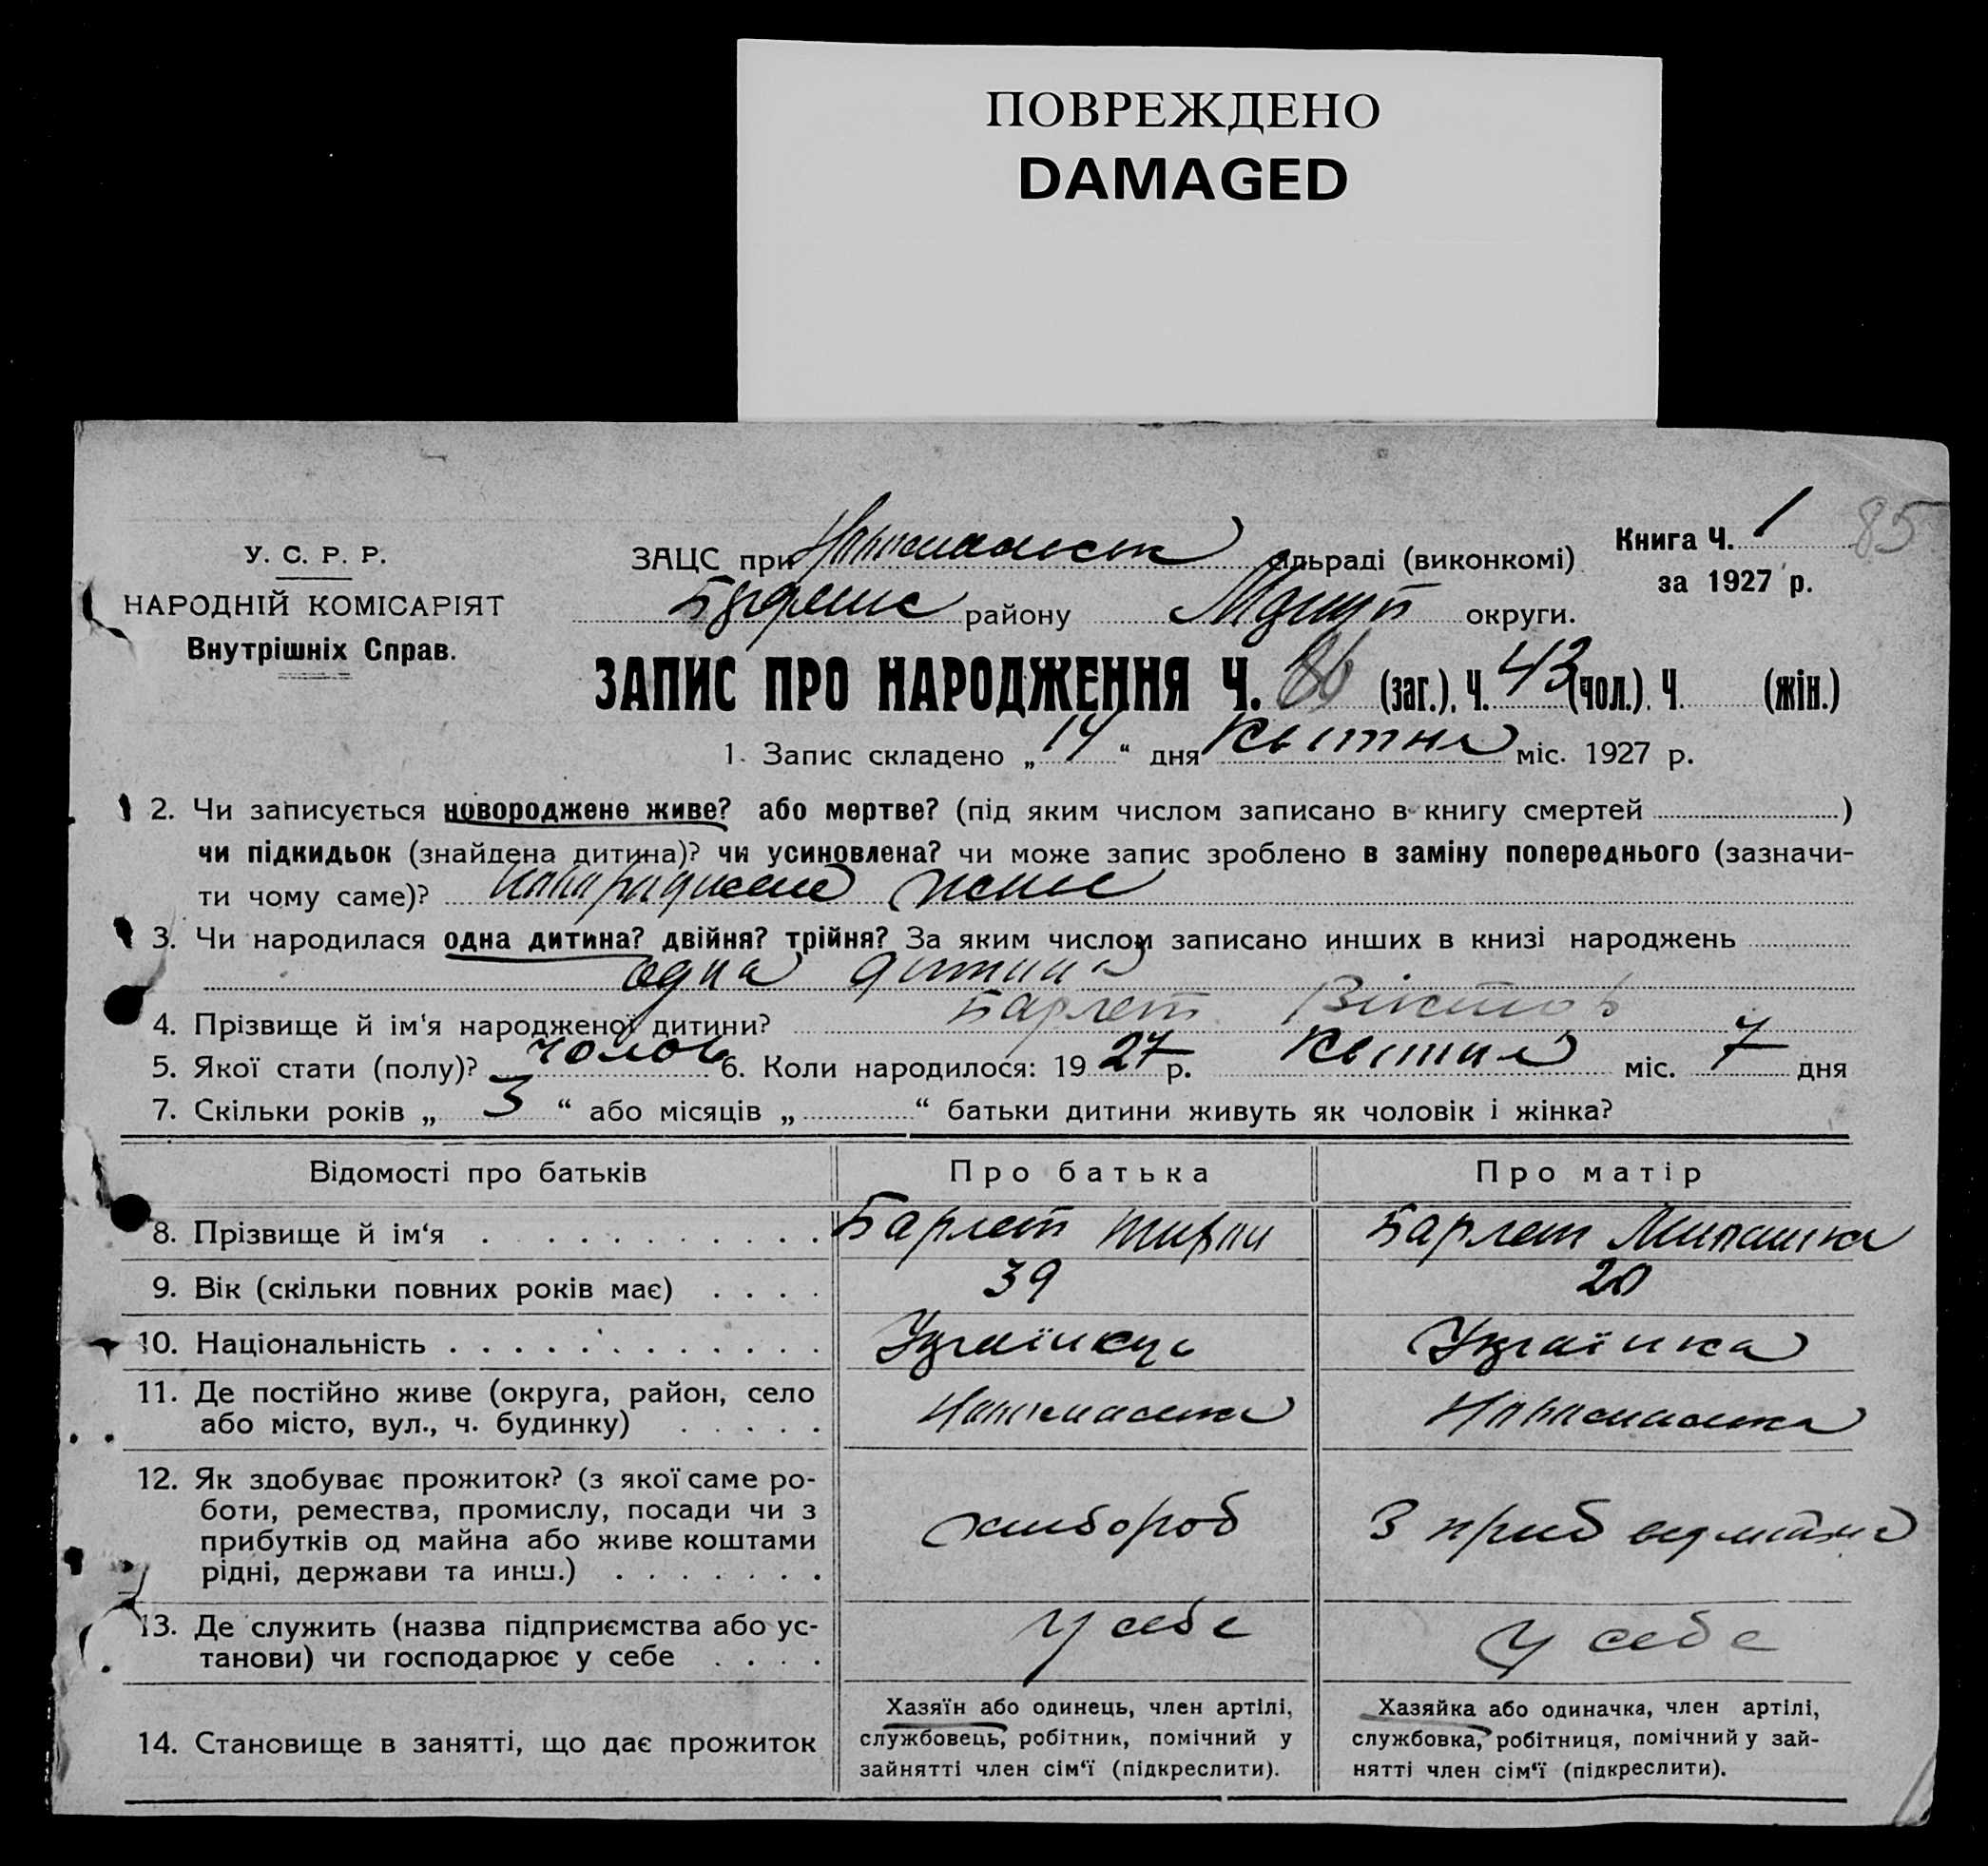 ПОВРЕЖДЕНО
DAMAGED
Книга Ч. 1 85
за 1927 р.
У. С. Р. Р.
НАРОДНІЙ КОМІСАРІЯТ
Внутрішніх Справ.
ЗАЦС при сільраді (виконкомі)
району округи.
ЗАПИС ПРО НАРОДЖЕННЯ Ч. 86 (заг.). Ч. 43 (чол.). Ч. (жін.)
1. Запис складено „ 14 “ дня Квітня міс. 1927 р.
2. Чи записується новороджене живе? або мертве? (під яким числом записано в книгу смертей )
чи підкидьок (знайдена дитина)? чи усиновлена? чи може запис зроблено в заміну попереднього (зазначи-
ти чому саме)? живе
3. Чи народилася одна дитина? двійня? трійня? За яким числом записано инших в книзі народжень
одна дитина
4. Прізвище й ім'я народженої дитини? Барлет Віктор
5. Якої стати (полу)? чолов 6. Коли народилося: 19 27 р. Квітня міс. 7 дня
7. Скільки років „ 3 “ або місяців „ “ батьки дитини живуть як чоловік і жінка?
Відомості про батьків Про батька Про матір
8. Прізвище й ім‘я Барлет Барлет
9. Вік (скільки повних років має) 39 20
10. Національність Українець Українка
11. Де постійно живе (округа, район, село
або місто, вул., ч. будинку)
12. Як здобуває прожиток? (з якої саме ро-
боти, ремества, промислу, посади чи з
прибутків од майна або живе коштами
рідні, держави та инш.) хлибороб З
13. Де служить (назва підприємства або ус-
танови) чи господарює у себе у себе у себе
14. Становище в занятті, що дає прожиток
Хазяїн або одинець, член артілі,
службовець, робітник, помічний у
зайнятті член сім‘ї (підкреслити).
Хазяйка або одиначка, член артілі,
службовка, робітниця, помічний у зай-
нятті член сім‘ї (підкреслити).